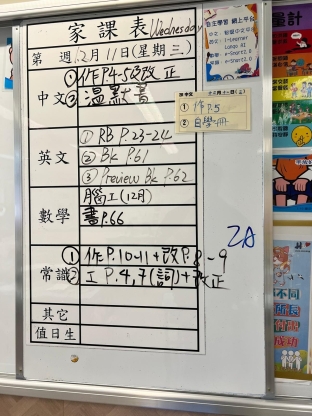 家課表 Wednesday
第 週 12月11日(星期三)
中文
①作P4-5及改正
②温默書
①作P.5
②自學冊
英文
①RB P.23-24
②Bk P.61
③Preview Bk P.62
數學
腦工(12月)
書P.66
2A
常識
①作P.10-11+改P.8-9
②工P.4,7(詞)+改正
其它
值日生
自主學習 網上平台
不同
成功